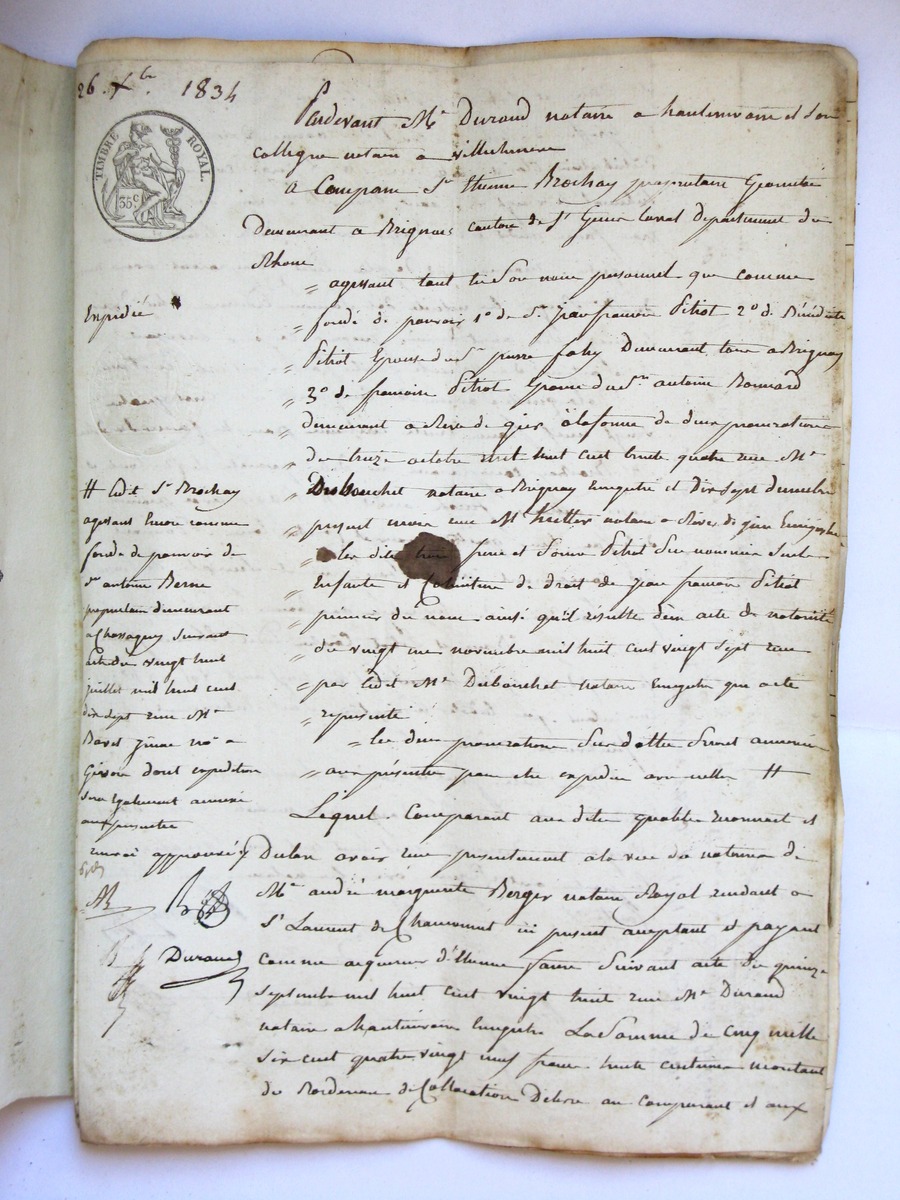 26 Xbre 1834
TIMBRE ROYAL.
35 c
Pardevant Me Durand notaire a hauterivoire et Son
collegue notaire a villechenève
A Comparu Sr Etienne Brochay propriétaire Géomètre
Demeurant a Brignais canton de St Genis Laval département du
Rhone
" agissant tant en Son nom personnel que comme
" fondé de pouvoirs 1o de Sr jean françois Pitiot 2o de Bénédicte
" Pitiot Epouse du Sr pierre Demeurant tous a Brignay
" 3o de françoise Pitiot Epouse du Sr antoine Bonnard
" demeurant a Rive de gier à la forme de deux procurations
" du treize octobre mil huit cent trente quatre reçue Me
" Dubouchet notaire a Brignay Enregistrée et dix Sept decembre
" present mois reçue Me notaire a Rive de gier Enregistrée
" les dits frere et Soeurs Pitiot Sus nommés Seuls
" Enfants et héritiers de droit de jean françois Pitiot
" premier du nom ainsi qu'il résulte d'un acte de notoriété
" du vingt un novembre mil huit cent vingt Sept reçu
" par ledit Me Dubouchet notaire Enregistré que acte
" représenté
" les deux procurations Sus datées Seront annexées
" aux présentes pour etre expediées avec elles #
Lequel Comparant aux dites qualités reconnait et
Declare avoir reçu présentement a la vue des notaires de
Me andré marguerite Berger notaire Royal residant a
St Laurent de Chamousset ici present acceptant et payant
comme acquereur d'Etienne faure Suivant acte du quinze
septembre mil huit cent vingt huit reçu Me Durand
notaire a hauterivoire Enregistré La Somme de cinq mille
six cent quatre vingt neuf francs trente centimes montant
du Bordereau de Collocation Delivré au comparant et aux
Expédié
# ledit Sr Brochay
agissant Encore comme
fondé de pouvoir de
Sr antoine Berne
proprietaire demeurant
a Chassagny Suivant
acte du vingt huit
juillet mil huit cent
dix sept reçu Me
nre a
Givors dont expedition
sera Egalement annexée
aux presentes
renvoi approuvé
AB
Durand